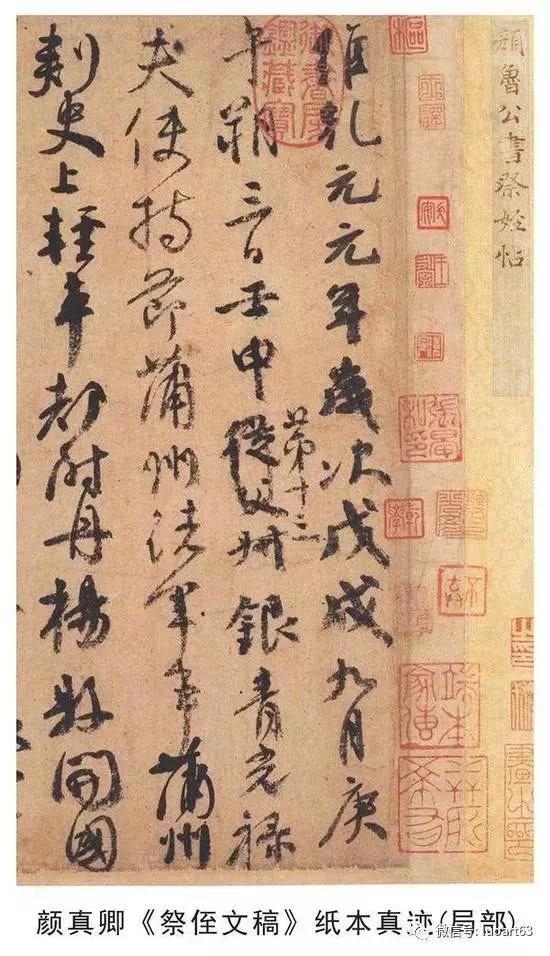 顏魯公書祭姪帖
維乾元元年歲次戊戌九月庚
午朔三日壬申從父叔銀青光祿
第十三
夫使持節蒲州諸軍事蒲州
刺史上輕車都尉丹楊縣開國
御書房鑑藏寶
颜真卿《祭侄文稿》纸本真迹(局部)
微信号: